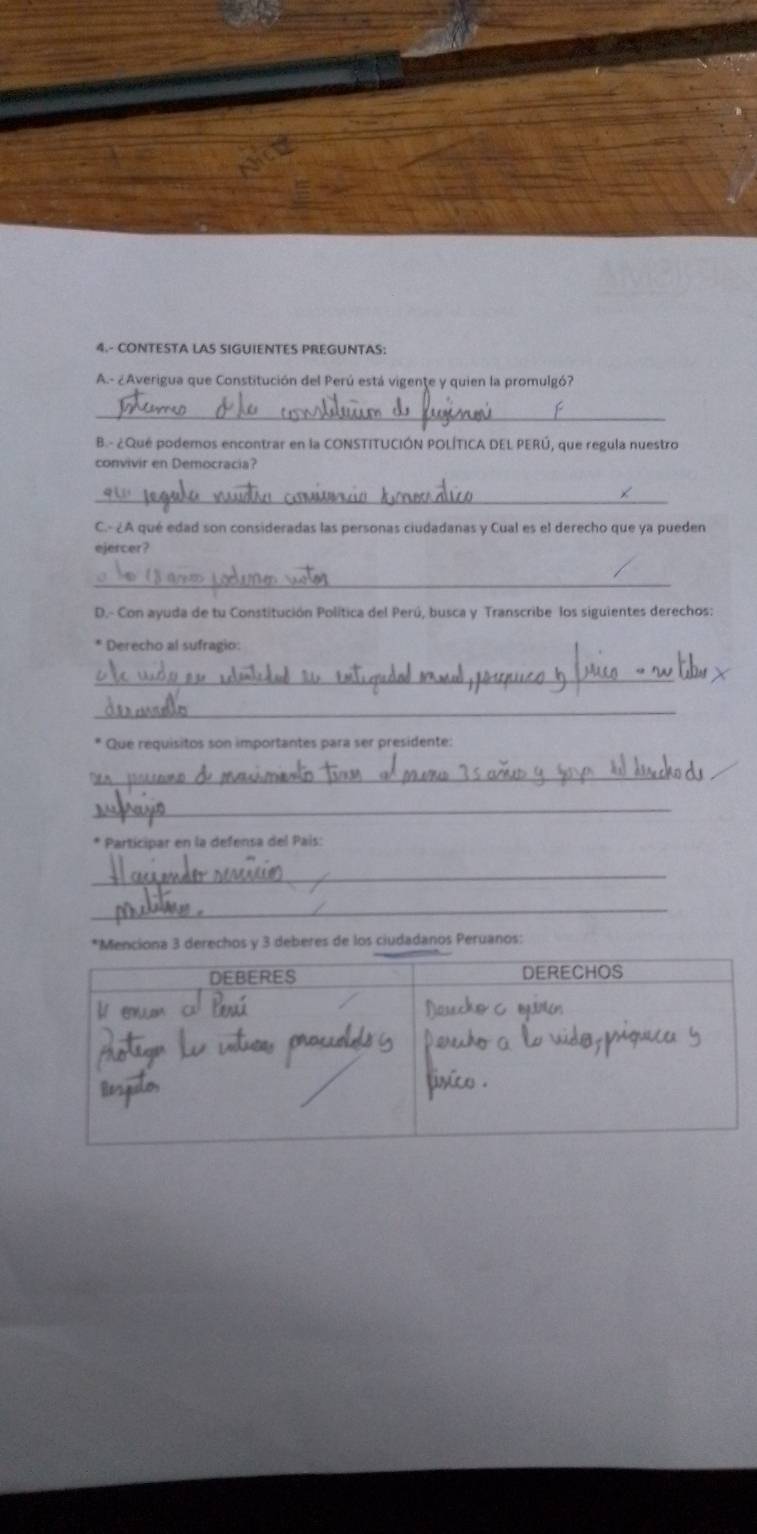 4.- CONTESTA LAS SIGUIENTES PREGUNTAS:
A.- ¿Averigua que Constitución del Perú está vigente y quien la promulgó?
constitucion de
B.- ¿Qué podemos encontrar en la CONSTITUCIÓN POLÍTICA DEL PERÚ, que regula nuestro
convivir en Democracia?
que regula
C.- ¿A qué edad son consideradas las personas ciudadanas y Cual es el derecho que ya pueden
ejercer?
a los 18 años podemos votar
D.- Con ayuda de tu Constitución Política del Perú, busca y Transcribe los siguientes derechos:
* Derecho al sufragio:
identidad su moral, y físico a su libre
desarrollo
* Que requisitos son importantes para ser presidente:
ser peruano de tener al menos 35 años y del derecho de
sufragio
* Participar en la defensa del País:
Haciendo servicio
militar.
*Menciona 3 derechos y 3 deberes de los ciudadanos Peruanos:
DEBERES DERECHOS
al Perú
Derecho
Proteger los y
Derecho a la vida, y
Respetar
físico.